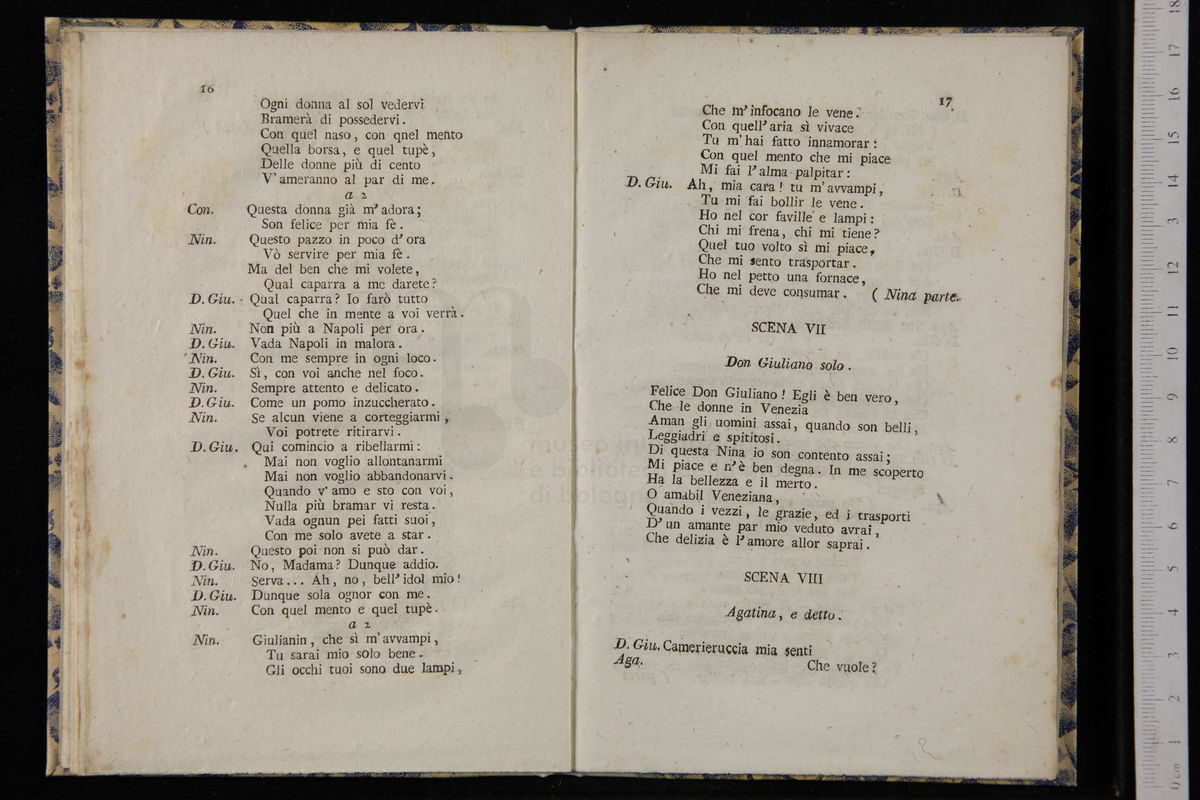 16
Ogni donna al sol vedervi
Bramerà di possedervi.
Con quel naso, con qnel mento
Quella borsa, e quel tupè,
Delle donne più di cento
V'ameranno al par di me.
a 2
Con. Questa donna già m'adora;
Son felice per mia fè.
Nin. Questo pazzo in poco d'ora
Vò servire per mia fè.
Ma del ben che mi volete,
Qual caparra a me darete?
D. Giu. Qual caparra? Io farò tutto
Quel che in mente a voi verrà.
Nin. Non più a Napoli per ora.
D. Giu. Vada Napoli in malora.
Nin. Con me sempre in ogni loco.
D. Giu. Sì, con voi anche nel foco.
Nin. Sempre attento e delicato.
D. Giu. Come un pomo inzuccherato.
Nin. Se alcun viene a corteggiarmi,
Voi potrete ritirarvi.
D. Giu. Qui comincio a ribellarmi:
Mai non voglio allontanarmi
Mai non voglio abbandonarvi.
Quando v'amo e sto con voi,
Nulla più bramar vi resta.
Vada ognun pei fatti suoi,
Con me solo avete a star.
Nin. Questo poi non si può dar.
D. Giu. No, Madama? Dunque addio.
Nin. Serva... Ah, no, bell'idol mio!
D. Giu. Dunque sola ognor con me.
Nin. Con quel mento e quel tupè.
a 2
Nin. Giulianin, che sì m'avvampi,
Tu sarai mio solo bene.
Gli occhi tuoi sono due lampi,
17
Che m'infocano le vene.
Con quell'aria sì vivace
Tu m'hai fatto innamorar:
Con quel mento che mi piace
Mi fai l'alma palpitar:
D. Giu. Ah, mia cara! tu m'avvampi,
Tu mi fai bollir le vene.
Ho nel cor faville e lampi:
Chi mi frena, chi mi tiene?
Quel tuo volto sì mi piace,
Che mi sento trasportar.
Ho nel petto una fornace,
Che mi deve consumar. ( Nina parte.
SCENA VII
Don Giuliano solo.
Felice Don Giuliano! Egli è ben vero,
Che le donne in Venezia
Aman gli uomini assai, quando son belli,
Leggiadri e spititosi.
Di questa Nina io son contento assai;
Mi piace e n'è ben degna. In me scoperto
Ha la bellezza e il merto.
O amabil Veneziana,
Quando i vezzi, le grazie, ed i trasporti
D'un amante par mio veduto avrai,
Che delizia è l'amore allor saprai.
SCENA VIII
Agatina, e detto.
D. Giu. Camerieruccia mia senti
Aga. Che vuole?